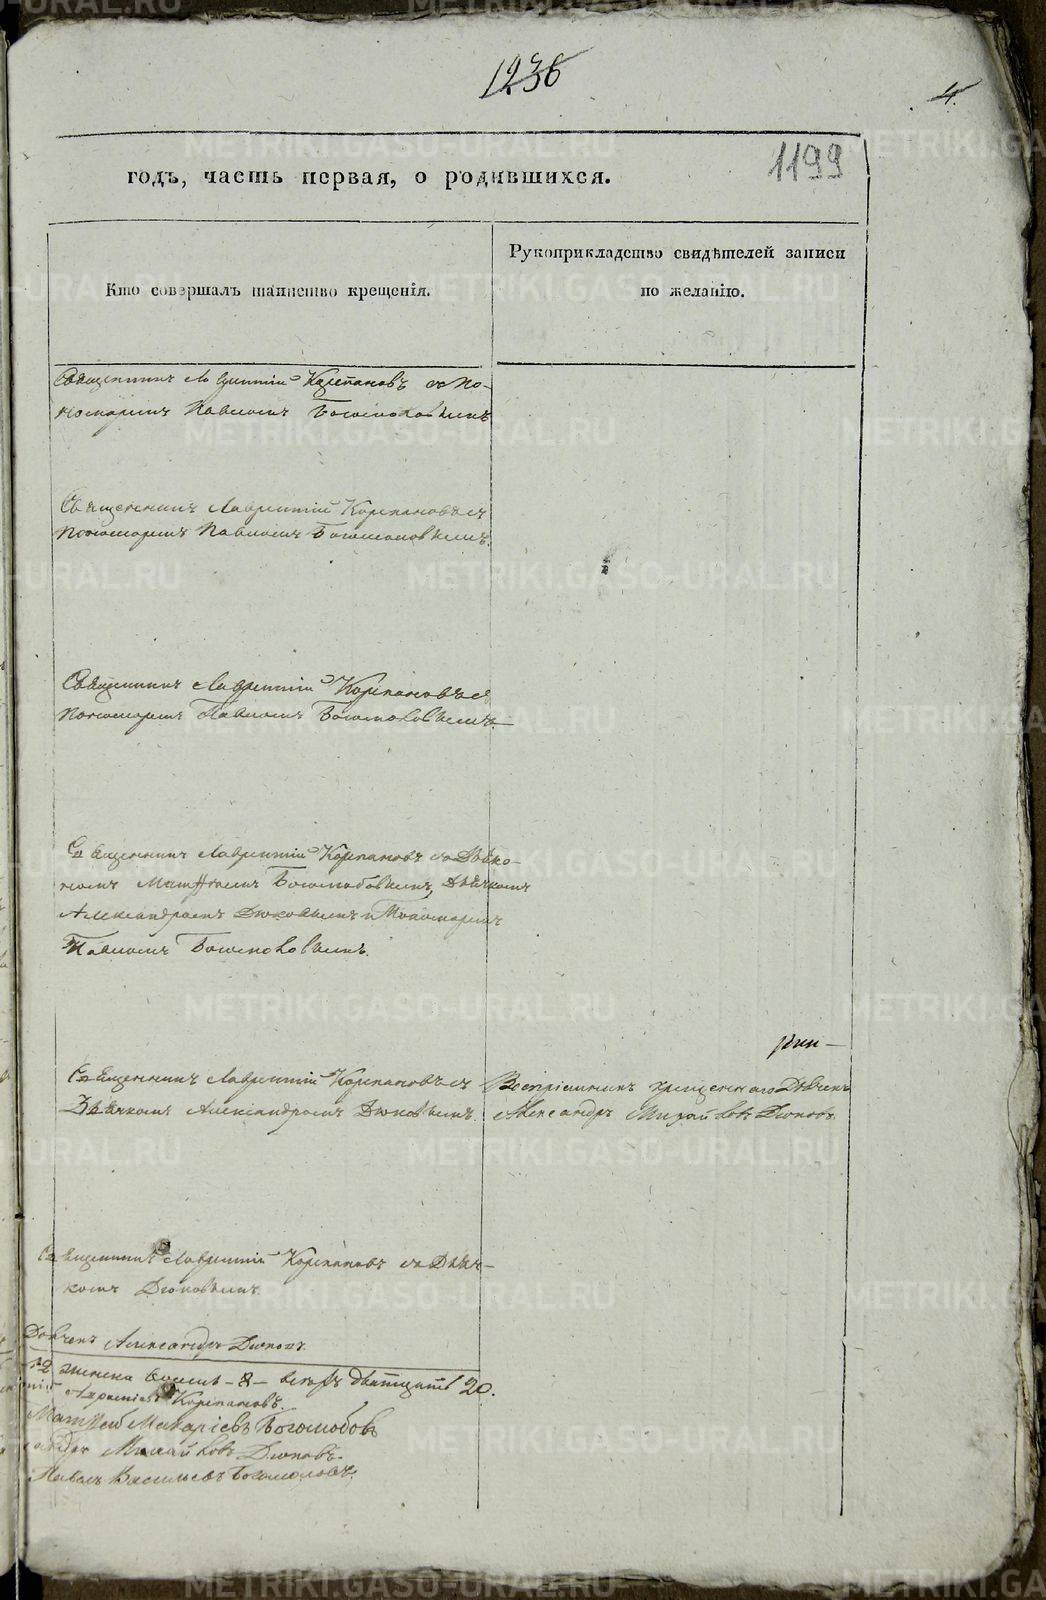 1236
4.
1199
годъ, часть первая, о родившихся.
Кто совершалъ таинство крещенія.
Рукоприкладство свидѣтелей записи
по желанію.
Священникъ Лаврентій Корепановъ съ По-
номаремъ Павломъ Богомоловымъ
Священникъ Лаврентій Корепановъ съ
Пономаремъ Павломъ Богомоловымъ.
Священникъ Лаврентій Корепановъ съ
Пономаремъ Павломъ Богомоловымъ.
Священникъ Лаврентій Корепановъ съ
Александромъ Дюковымъ и Пономаремъ
Павломъ Богомоловымъ.
Священникъ Лаврентій Корепановъ съ
Дьячкомъ Александромъ Дюковымъ.
Воспріемникъ крещеннаго Дьячекъ
Александръ Михайловъ Дюковъ.
Священникъ Лаврентій Корепановъ съ Дьяч-
комъ Дюковымъ.
Дьячекъ Александръ Дюковъ.
женска восемь - 8 - всего двадцать 20.
Корепановъ.
Матвей Макаріевъ Боголюбовъ
Михайловъ Дюковъ.
Павелъ Васильевъ Богомоловъ.
METRIKI.GASO-URAL.RU